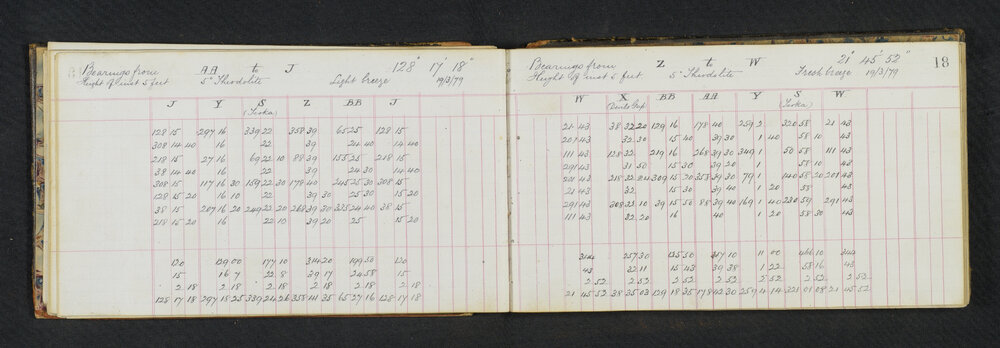 Bearings from AA to J 128° 17' 18"
Height of inst 5 feet 5" Theodolite Light breeze 19/3/79
J Y S Z BB J
(Tioka)
128 15 297 16 339 22 358 39 65 25 128 15
308 14 40 16 22 39 24 40 14 40
218 15 27 16 69 22 10 88 39 155 25 218 15
38 14 40 16 22 39 24 30 14 40
308 15 117 16 30 159 22 30 178 40 245 25 30 308 15
128 15 20 16 10 22 39 30 25 30 15 20
38 15 207 16 20 249 22 20 268 39 30 335 24 40 38 15
218 15 20 16 22 10 39 20 25 15 20
120 129 00 177 10 314 20 199 50 120
15 16 7 22 8 39 17 24 58 15
2 18 2 18 2 18 2 18 2 18 2 18
128 17 18 297 18 25 339 24 26 358 41 35 65 27 16 128 17 18
18
Bearings from Z to W 21° 45' 52"
Height of inst 5 feet 5" Theodolite Fresh breeze 19/3/79
W X BB AA Y S W
Devils Gap (Tioka)
21 43 38 32 20 129 16 178 40 259 2 320 58 21 43
201 43 32 30 15 40 39 30 1 40 58 10 43
111 43 128 32 219 16 268 39 30 349 1 50 58 111 43
291 43 31 50 15 30 39 20 1 58 10 43
201 43 218 32 20 309 15 20 358 39 30 79 1 140 58 20 201 43
21 43 32 15 30 39 40 1 20 58 43
291 43 308 32 10 39 15 50 88 39 40 169 1 40 230 59 291 43
111 43 32 20 16 40 1 20 58 30 43
344 257 30 125 50 317 10 11 00 466 10 344
43 32 11 15 43 39 38 1 22 58 16 43
2 52 2 52 2 52 2 52 2 52 2 52 2 52
21 45 52 38 35 03 129 18 35 178 42 30 259 4 14 321 01 08 21 45 52